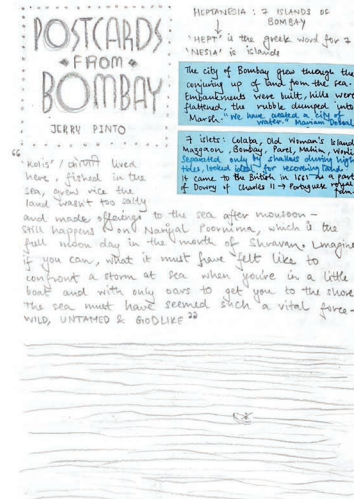 POSTCARDS
FROM
BOMBAY
JERRY PINTO
HEPTANESIA : 7 ISLANDS OF
BOMBAY
'HEPT' is the greek word for 7
'NESIA' is islands
The city of Bombay grew through the
conjuring up of land from the sea.
Embankments were built, hills were
flattened, the rubble dumped into
Marsh. "We have created a city of
water." Mariam Dossal
7 islets : Colaba, Old Woman's Island
Mazgaon, Bombay, Parel, Mahim, Worli
Separated only by shallows during high
tides, looked ideal for recovering land.
It came to the British in 1661 as a part
of Dowry of Charles II → Portuguese royal
"Kolis' / lived
here, fished in the
sea, grew rice the
land wasn't too salty
and made offerings to the sea after monsoon -
Still happens on Nariyal Poornima, which is the
full moon day in the month of Shravan. Imagine
if you can, what it must have felt like to
confront a storm at sea when you're in a little
boat and with only oars to get you to the shore
The sea must have seemed such a vital force -
WILD, UNTAMED & GODLIKE"